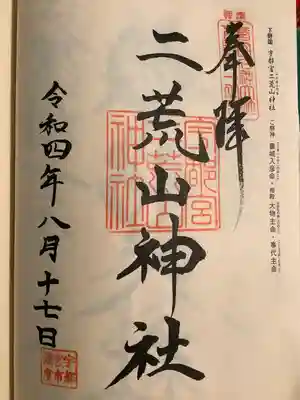 下野國 宇都宮二荒山神社 ご祭神 豊城入彦命・相殿 大物主命・事代主命
奉拝
二荒山神社
宇都宮
二荒山
神社
令和四年八月十七日